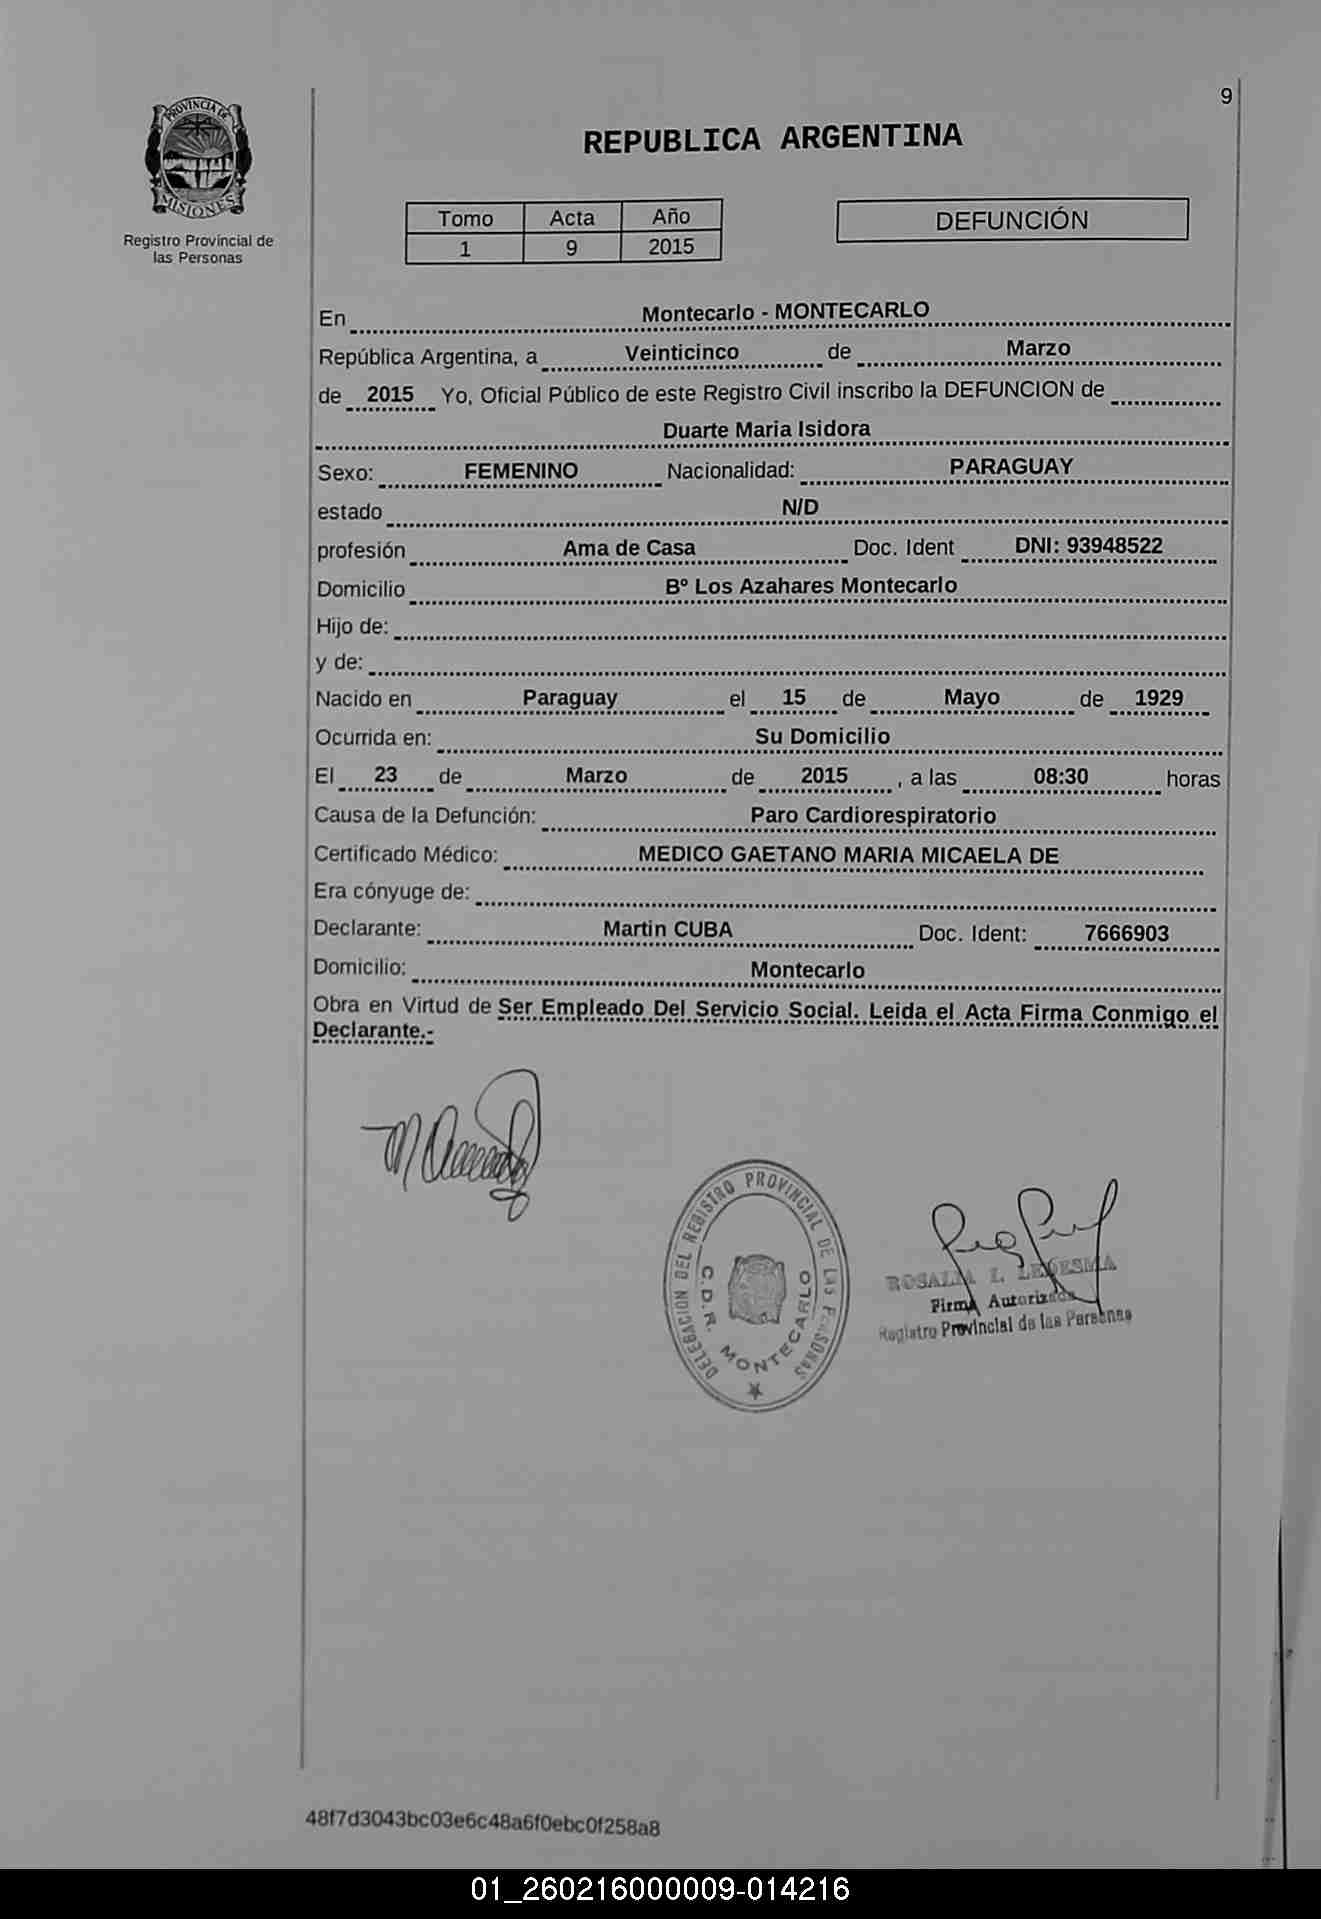 9
REPUBLICA ARGENTINA
PROVINCIA DE
MISIONES
Registro Provincial de
las Personas
Tomo Acta Año
1 9 2015
DEFUNCIÓN
En Montecarlo - MONTECARLO
República Argentina, a Veinticinco de Marzo
de 2015 Yo, Oficial Público de este Registro Civil inscribo la DEFUNCION de
Duarte Maria Isidora
Sexo: FEMENINO Nacionalidad: PARAGUAY
estado N/D
profesión Ama de Casa Doc. Ident DNI: 93948522
Domicilio Bº Los Azahares Montecarlo
Hijo de:
y de:
Nacido en Paraguay el 15 de Mayo de 1929
Ocurrida en: Su Domicilio
El 23 de Marzo de 2015 , a las 08:30 horas
Causa de la Defunción: Paro Cardiorespiratorio
Certificado Médico: MEDICO GAETANO MARIA MICAELA DE
Era cónyuge de:
Declarante: Martin CUBA Doc. Ident: 7666903
Domicilio: Montecarlo
Obra en Virtud de Ser Empleado Del Servicio Social. Leida el Acta Firma Conmigo el
Declarante.-
DELEGACION DEL REGISTRO PROVINCIAL DE LAS PERSONAS
C.D.R. MONTECARLO
ROSALIA I. LEDESMA
Firma Autorizada
Registro Provincial de las Personas
48f7d3043bc03e6c48a6f0ebc0f258a8
01_260216000009-014216